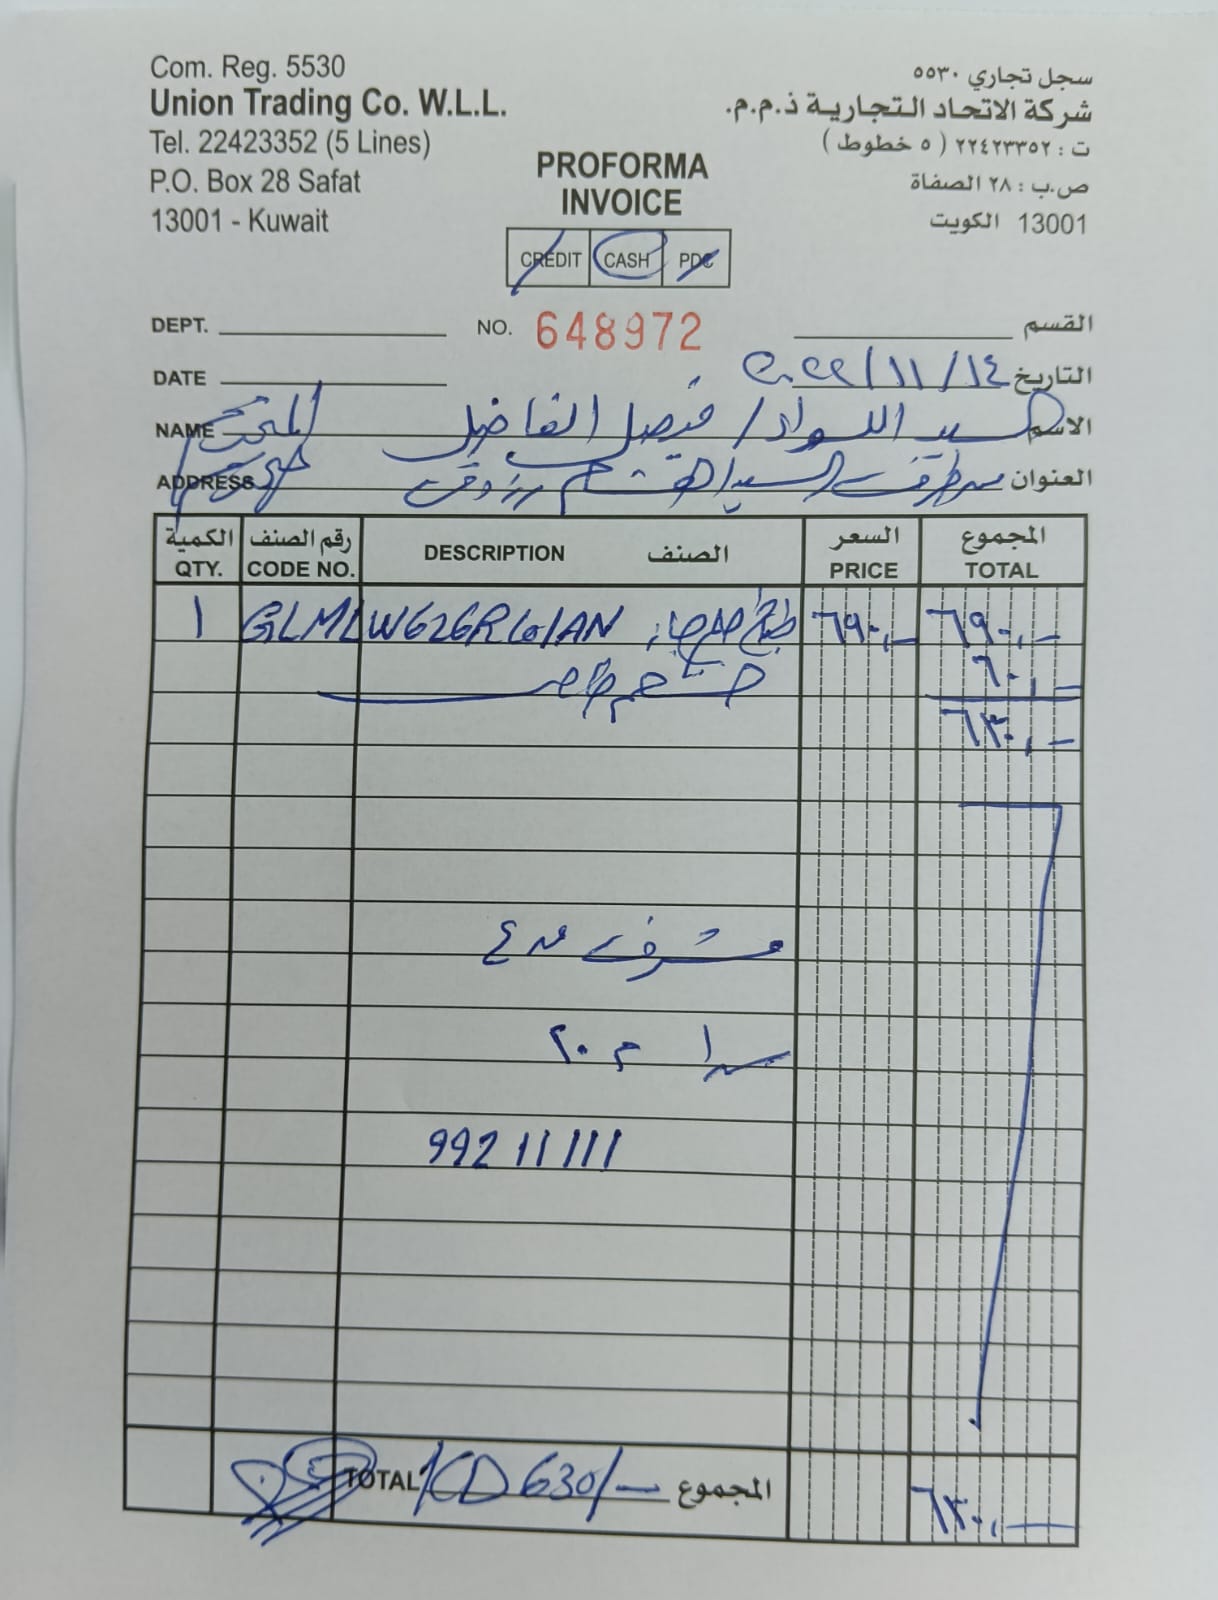 Com. Reg. 5530
Union Trading Co. W.L.L.
Tel. 22423352 (5 Lines)
P.O. Box 28 Safat
13001 - Kuwait
سجل تجاري ٥٥٣٠
شركة الاتحاد التجارية ذ.م.م.
ت : ٢٢٤٢٣٣٥٢ ( ٥ خطوط )
ص.ب : ٢٨ الصفاة
13001 الكويت
PROFORMA
INVOICE
CREDIT CASH PDC
DEPT. NO. 648972 القسم
DATE ٢٠٢٢/١١/١٤ التاريخ
NAME السيد اللواء / فيصل الفاضل الاسم
ADDRESS العنوان
الكمية رقم الصنف الصنف السعر المجموع
QTY. CODE NO. DESCRIPTION PRICE TOTAL
١ GLMLW626R طباخ ٦٩٠,— ٦٩٠,—
خصم خاص ٦٠,—
٦٣٠,—
مشرف
م ٢٠
99211111
TOTAL KD 630/— المجموع ٦٣٠,—